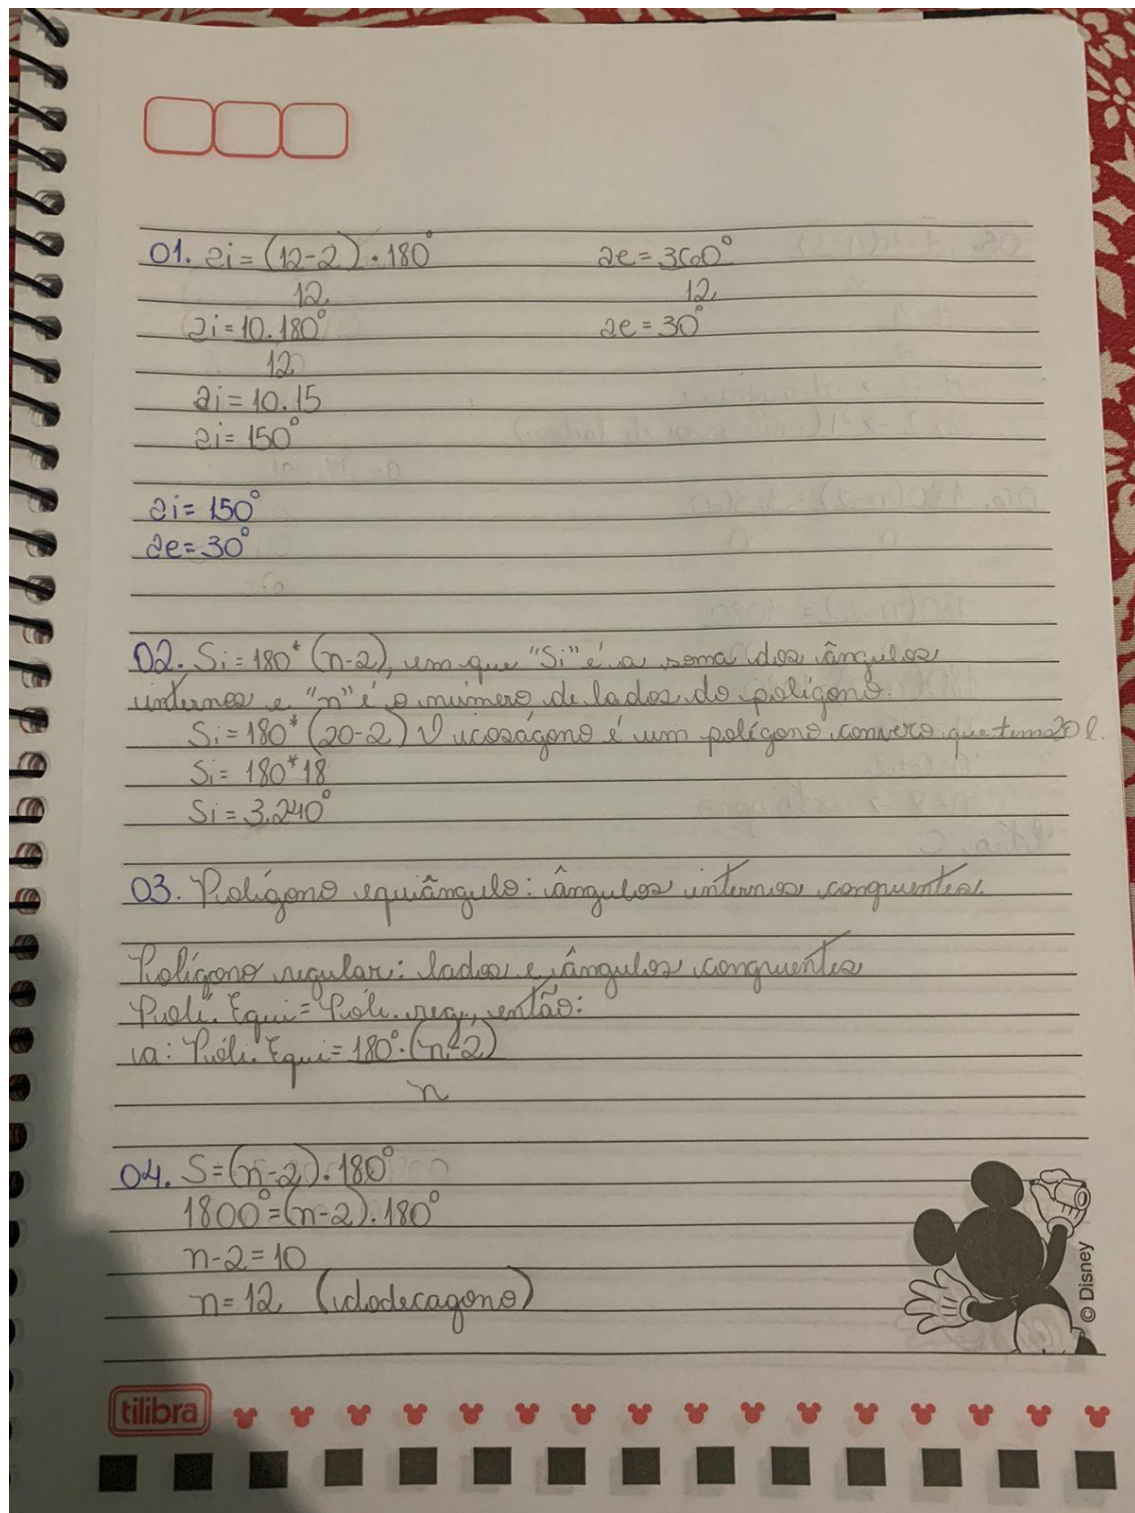 01. ai = (12-2) . 180°
12
ai = 10.180°
12
ai = 10.15
ai = 150°
ae = 360°
12
ae = 30°
ai = 150°
ae = 30°
02. Si = 180* (n-2), em que "Si" é a soma dos ângulos
internos e "n" é o número de lados do polígono.
Si = 180* (20-2) O icoságono é um polígono convexo que tem 20 l.
Si = 180*18
Si = 3.240°
03. Polígono equiângulo: ângulos internos congruentes.
Polígono regular: lados e ângulos congruentes
Polí. Equi = Polí. reg., então:
a: Polí. Equi = 180°.(n-2)
n
04. S = (n-2) . 180°
1800° = (n-2) . 180°
n-2 = 10
n = 12 (dodecagono)
© Disney
tilibra